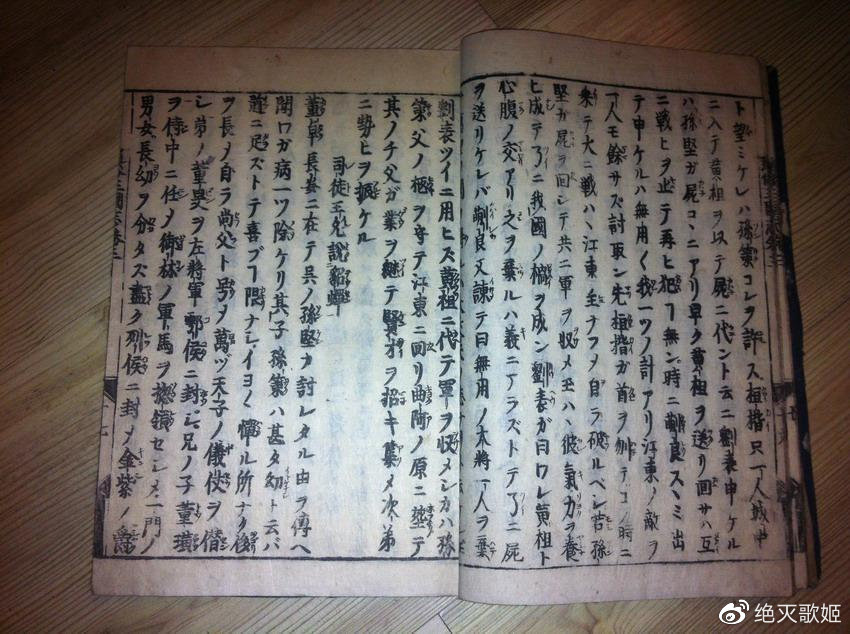 ト望ミケレハ孫策コレヲ許ス桓揩只一人城中
ニ入テ黄祖ヲ以テ屍ニ代ント云ニ劉表申ケル
ハ孫堅ガ屍コヽニアリ早ク黄祖ヲ送リ回サハ互
ニ戦ヒヲ止テ再ヒ犯ヿ無ン時ニ蒯良スヽミ出
テ申ケルハ無用〱我一ツノ計アリ江東ノ敵ヲ
一人モ餘サズ討取ン先桓揩ガ首ヲ刎テコノ時ニ
乗テ大ニ戦ハヽ江東ナフメ自ラ破ルベシ若孫
堅ガ屍ヲ回シテ共ニ軍ヲ収メ玉ハヽ彼氣力ヲ養
ヒ成テ了ニ我國ノ禍ヲ成ン劉表ガ曰ワレ黄祖ト
心腹ノ交アリ之ヲ棄ルハ義ニアラズトテ了ニ屍
ヲ送リケレバ蒯良又諫テ曰無用ノ大將一人ヲ棄
劉表ツイニ用ヒズ黄祖ニ代テ軍ヲ収メシカハ孫
策父ノ柩ヲ守テ江東ニ回リ曲阿ノ原ニ塟テ
其ノチ父ガ業ヲ継テ賢才ヲ招キ集メ次弟
ニ勢ヒヲ振ケル
司徒王允說貂蟬
董卓長安ニ在テ呉ノ孫堅カ討レタル由ヲ傳ヘ
聞ワガ病一ツ除ケリ其子孫策ハ甚タ幼ト云バ
ニ足ズトテ喜ブヿ限ナシイヨ〱憚ル所ナク後
ヲ長メ自ラ尚父ト号メ萬ヅ天子ノ儀使ヲ僭
シ弟ノ董旻ヲ左將軍鄠侯ニ封シ兄ノ子董璜
ヲ侍中ニ任メ御林ノ軍馬ヲ總領セシメ一門ノ
男女長幼ヲ分タズ盡ク列侯ニ封メ金紫ノ爵
十七
绝灭歌姬